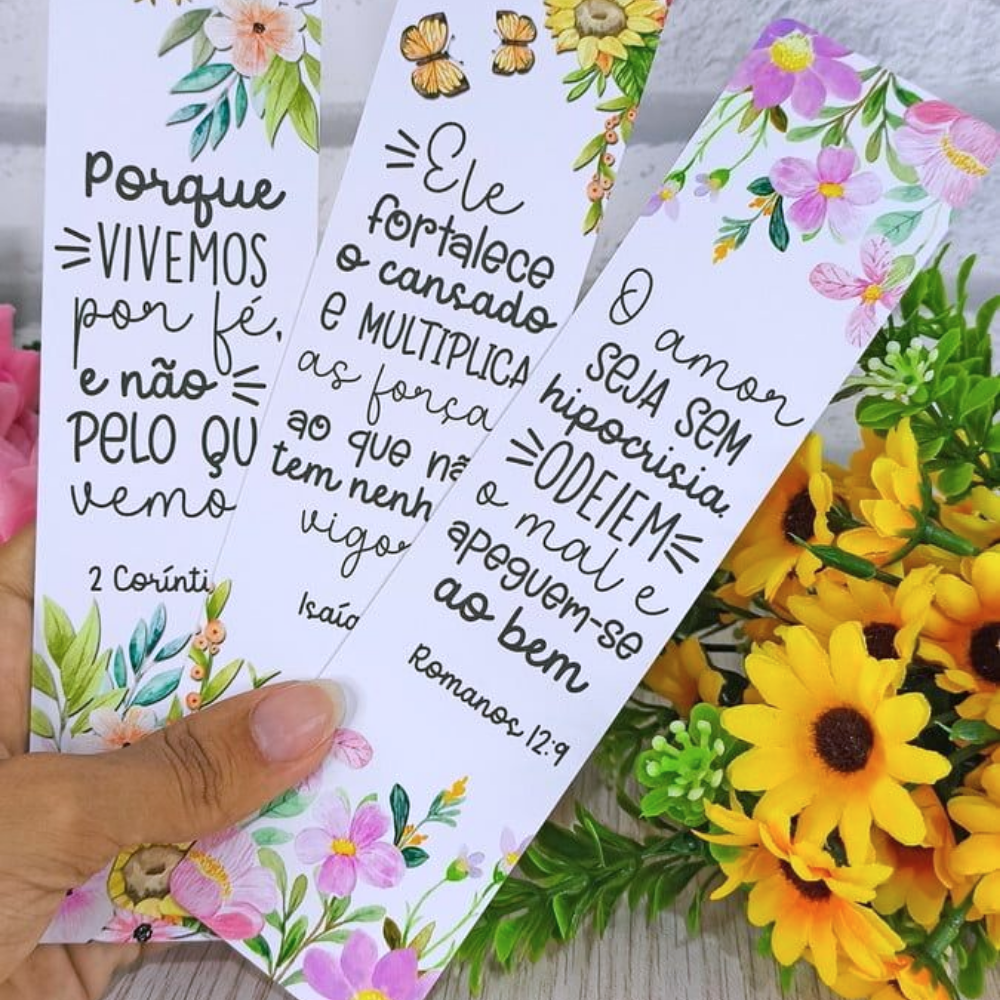 Porque
VIVEMOS
por fé,
e não
PELO QU
vemo
2 Corínti
Ele
fortalece
o cansado
E MULTIPLICA
as força
ao que nã
tem nenh
vigor
Isaía
O amor
SEJA SEM
hipocrisia.
ODEIEM
o mal e
apeguem-se
ao bem
Romanos 12:9